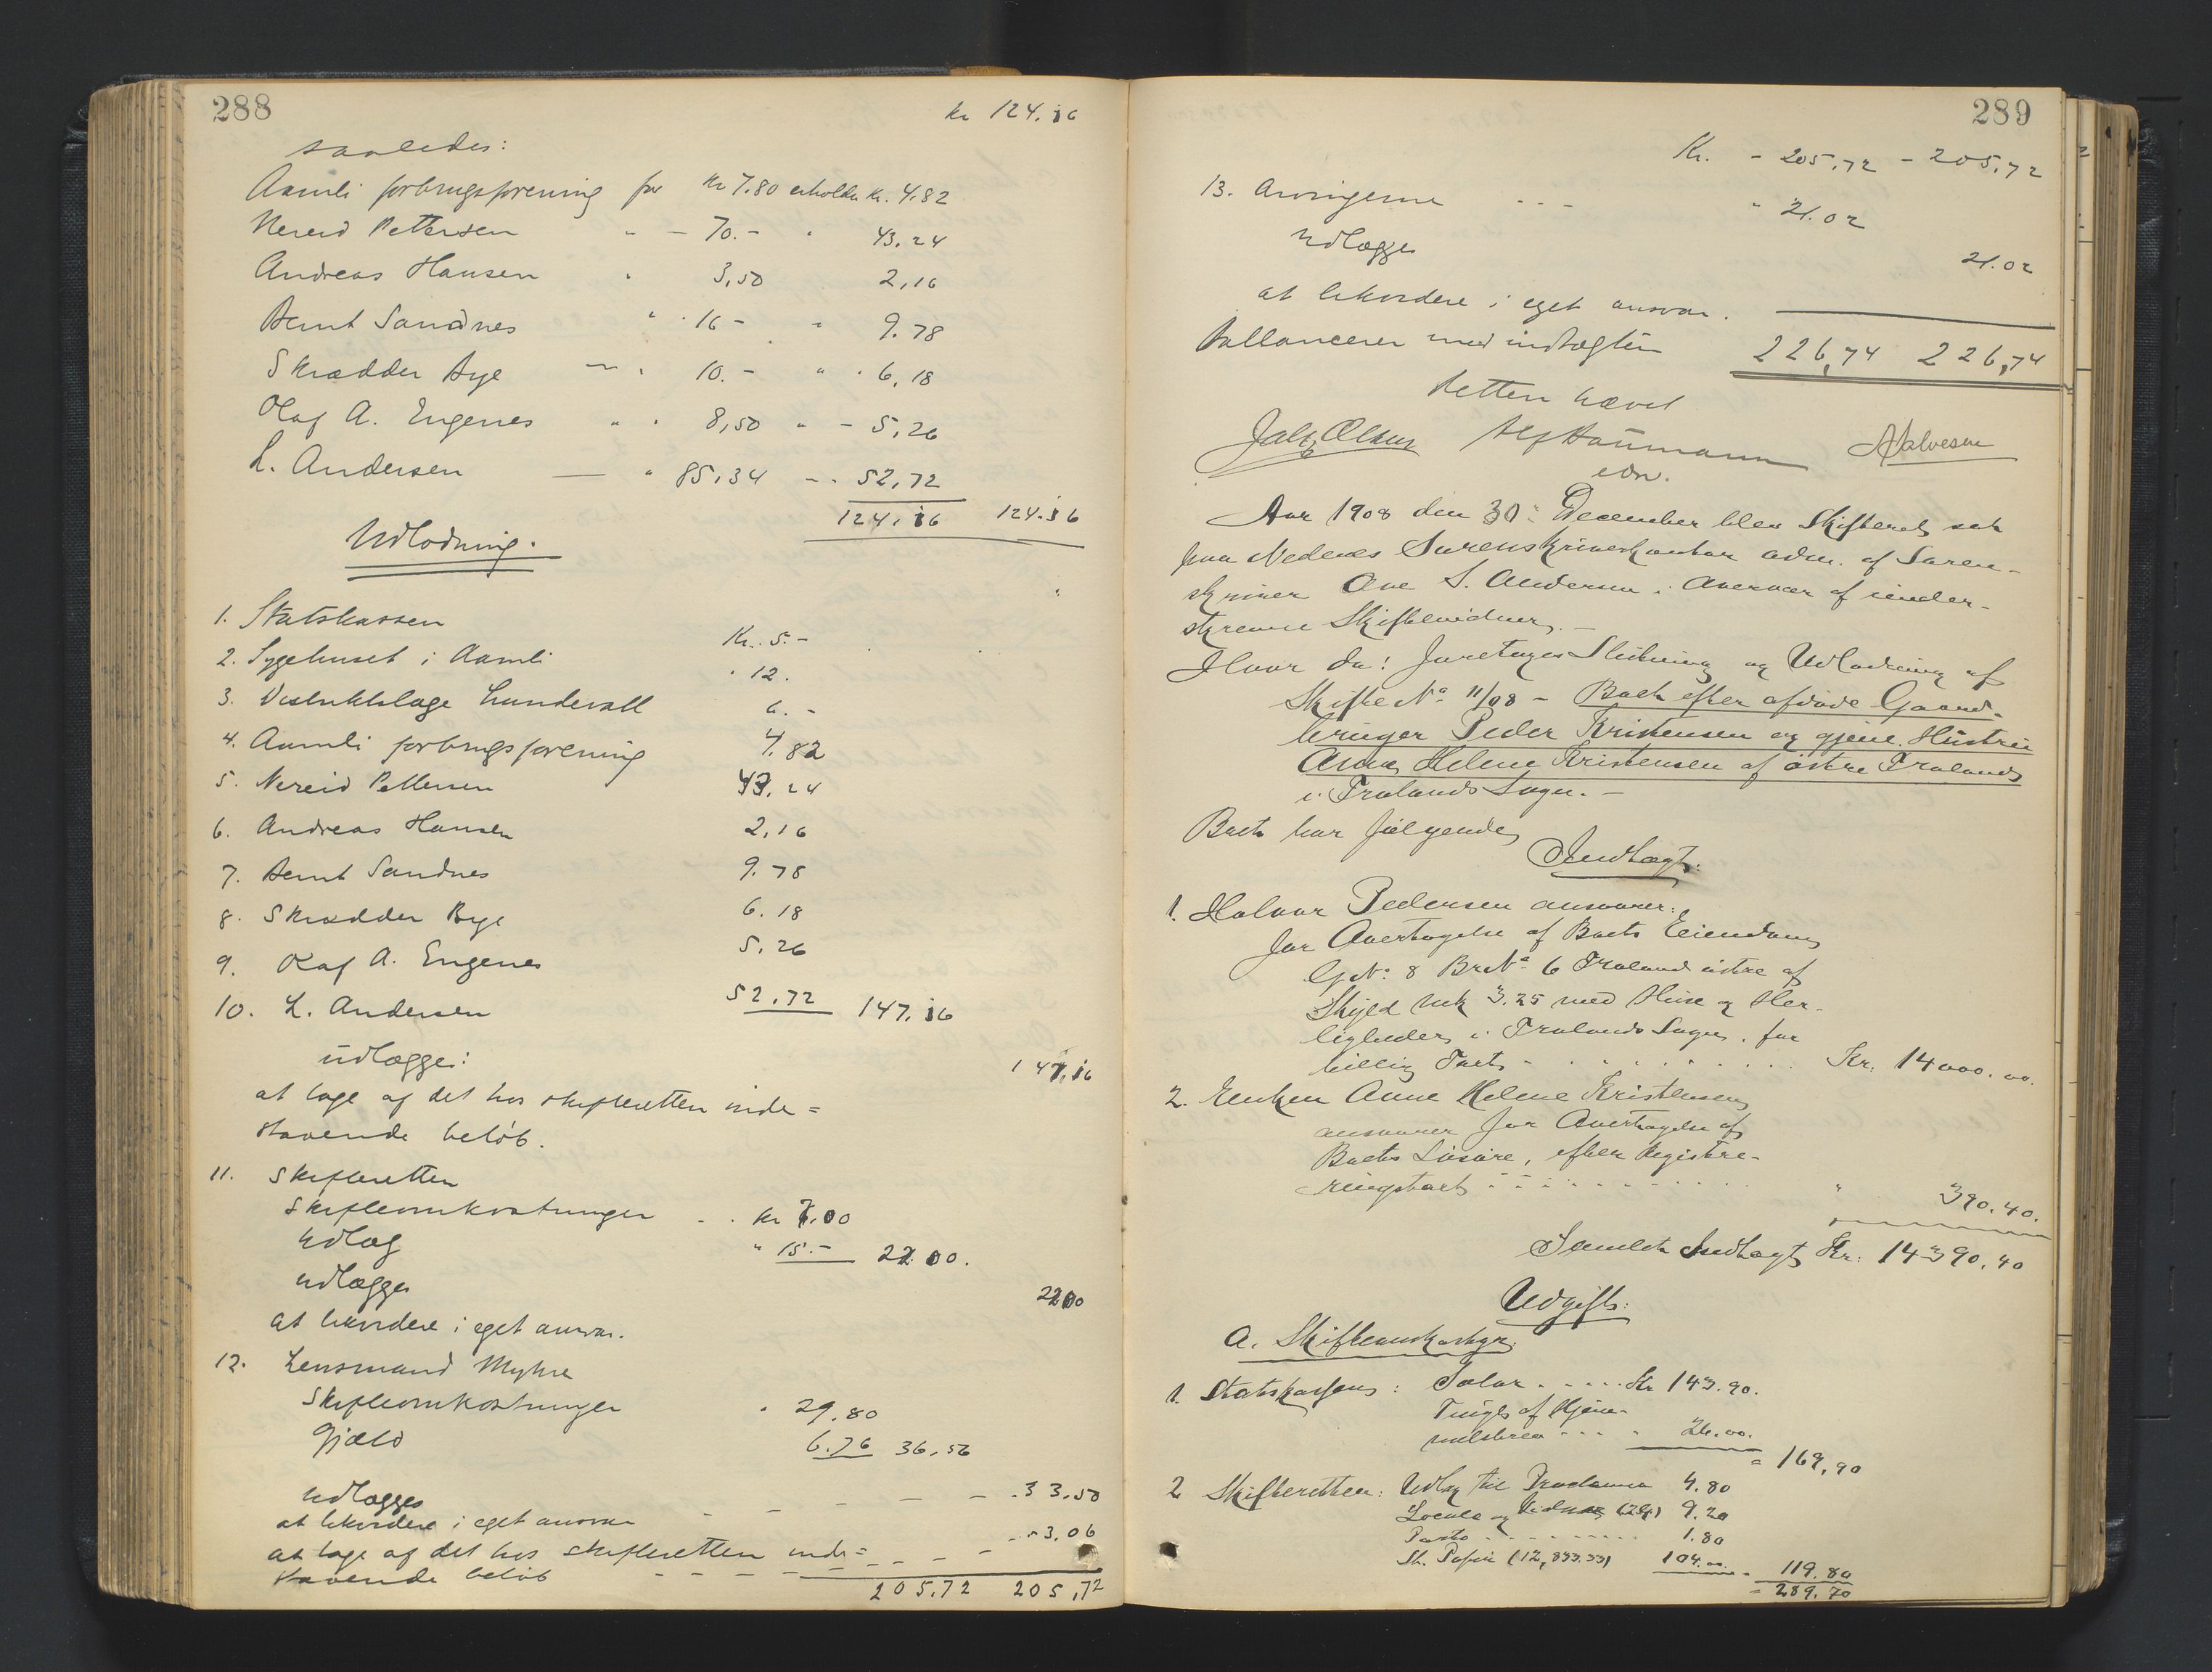 288
kr 124.16
saaledes:
Aamli forbrugsforening for kr 7.80 erholder kr. 4.82
Nereid Pettersen " — 70.- " 43.24
Andreas Hansen " 3,50 2,16
Bernt Sandnes " 16 - " 9.78
Skrædder Bye — " 10.- " " 6,18
Olaf A. Engenes " " 8,50 " - 5,26
L. Andersen — " 85,34 - " 52,72
124.16 124.16
Udlodning.
1. Statskassen Kr. 5.-
2. Sygehuset i Aamli " 12.
3. Distriktslæge Lundevall 6.-
4. Aamli forbrugsforening 4.82
5. Nereid Pettersen 43.24
6. Andreas Hansen 2,16
7. Bernt Sandnes 9.78
8. Skrædder Bye 6.18
9. Olaf A. Engenes 5.26
10. L. Andersen 52,72 147.16
udlægges: 147,16
at tage af det hos skifteretten inde=
staaende beløb.
11. Skifteretten
Skifteomkostninger kr 7.00
Udlæg " 15.- 22.00.
udlægges 2200
at likvidere i eget ansvar.
12. Lensmand Myhre
Skifteomkostninger " 29.80
Gjæld 6.76 36,56
udlægges
at likvidere i eget ansvar - - - - . 33.50
at tage af det hos skifteretten inde= - - - " 3.06
staaende beløb
205.72 205,72
289
Kr. - 205,72 - 205,72
13. Arvingerne - - - " 21.02
udlægges 21.02
at likvidere i eget ansvar.
Ballancerer med indtægten 226,74 226,74
Retten hævet
Edv.
Aar 1908 den 30. December blev Skifteret sat
paa Nedenes Sorenskriverkontor adm. af Soren-
skriver Ove S. Andersen i Overvær af under-
skrevne Skiftevidner. -
Hvor da: foretoges Slutning og Udlodning af
Skifte No 11/08 - Boet efter afdøde Gaard-
bruger Peder Kristensen og gjenl. Hustru
Anne Helene Kristensen af østre Traland
i Tralands Sogn. -
Boet har følgende
Indtægt:
1. Halvor Pedersen ansvarer:
for Overtagelse af Boets Eiendom
G.No. 8 Br.No. 6 Traland østre af
Skyld mk 3.25 med Huse og Her-
ligheder i Tralands Sogn, for
billig Taxt - . . . . . . . . Kr. 14000.00.
2. Enken Anne Helene Kristensen
ansvarer for Overtagelse af
Boets Løsøre, efter Registre-
ringstaxt . . . . . . . . " 390.40.
Samlet Indtægt Kr. 14390,40
Udgift:
A. Skifteomkostgr.
1. Statskassen: Salær . . . . Kr 143.90.
Tinglg af Hjem-
melsbrev . . . " 26.00.
" 169,90
2 Skifteretten: Udlæg til Proclama 4.80
Locale og Vidner 9.20
Porto . . . . . . . . 1.80
St. Papir (12,833.33) 104.00 " 119.80
= 289.70